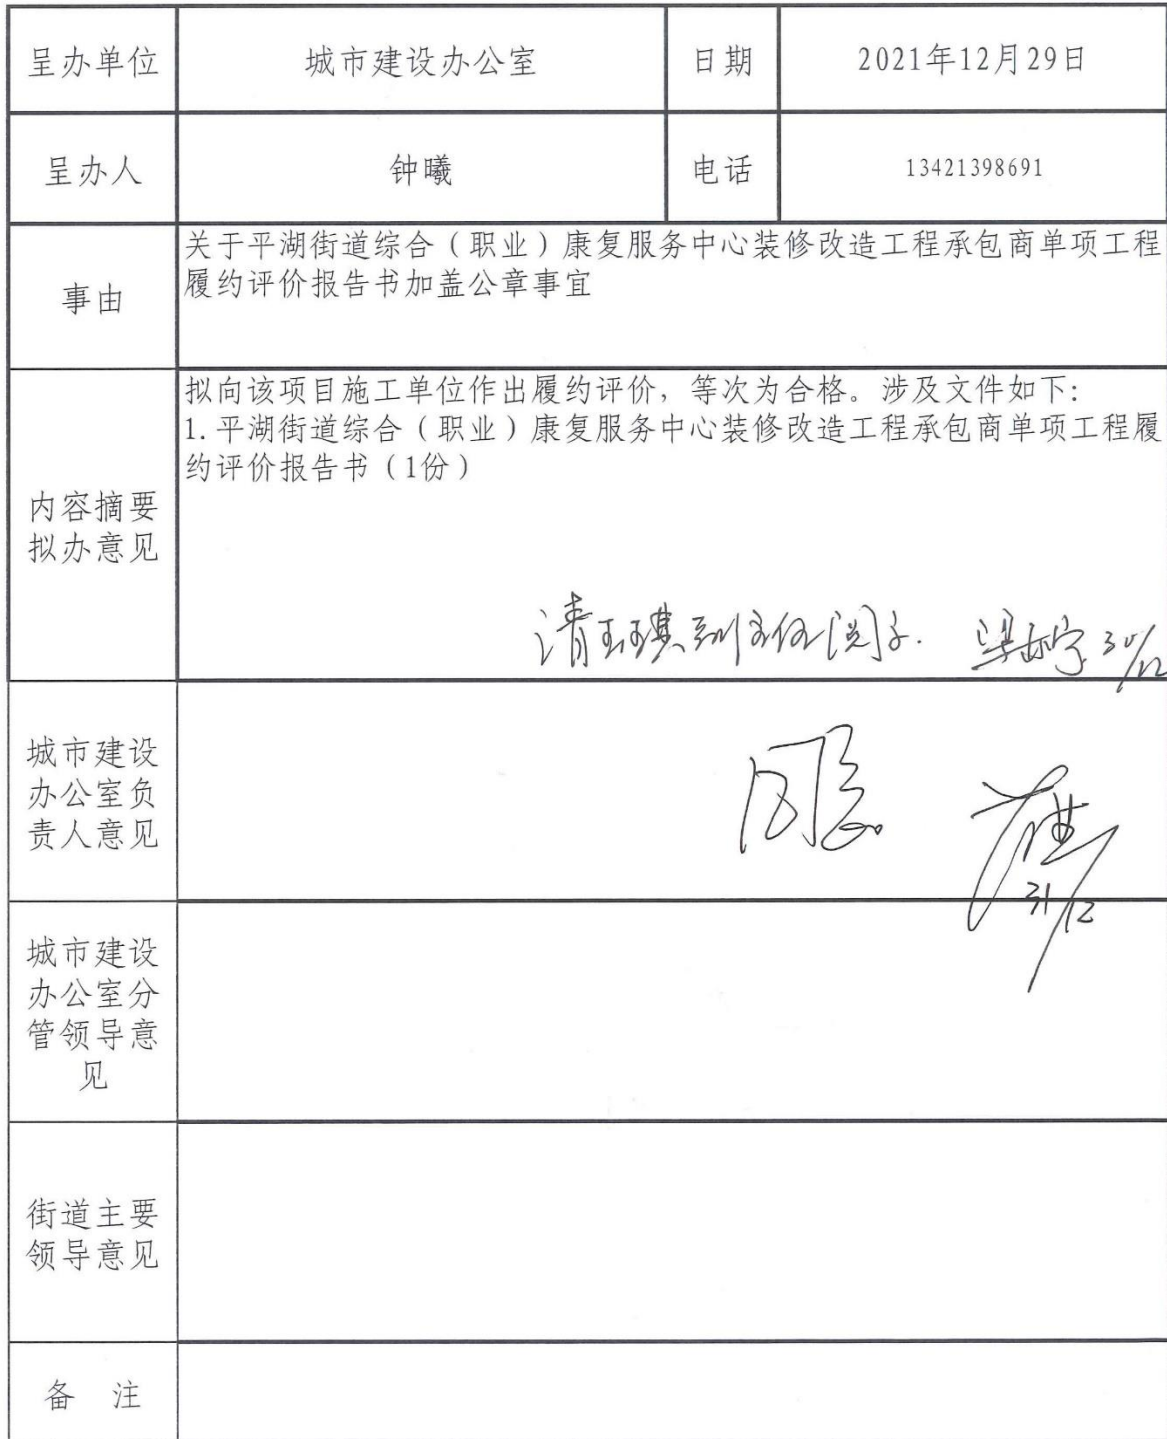 呈办单位 城市建设办公室 日期 2021年12月29日
呈办人 钟曦 电话 13421398691
事由
关于平湖街道综合（职业）康复服务中心装修改造工程承包商单项工程
履约评价报告书加盖公章事宜
内容摘要
拟办意见
拟向该项目施工单位作出履约评价，等次为合格。涉及文件如下：
1.平湖街道综合（职业）康复服务中心装修改造工程承包商单项工程履
约评价报告书（1份）
30/12
城市建设
办公室负
责人意见
同意
31/12
城市建设
办公室分
管领导意
见
街道主要
领导意见
备 注